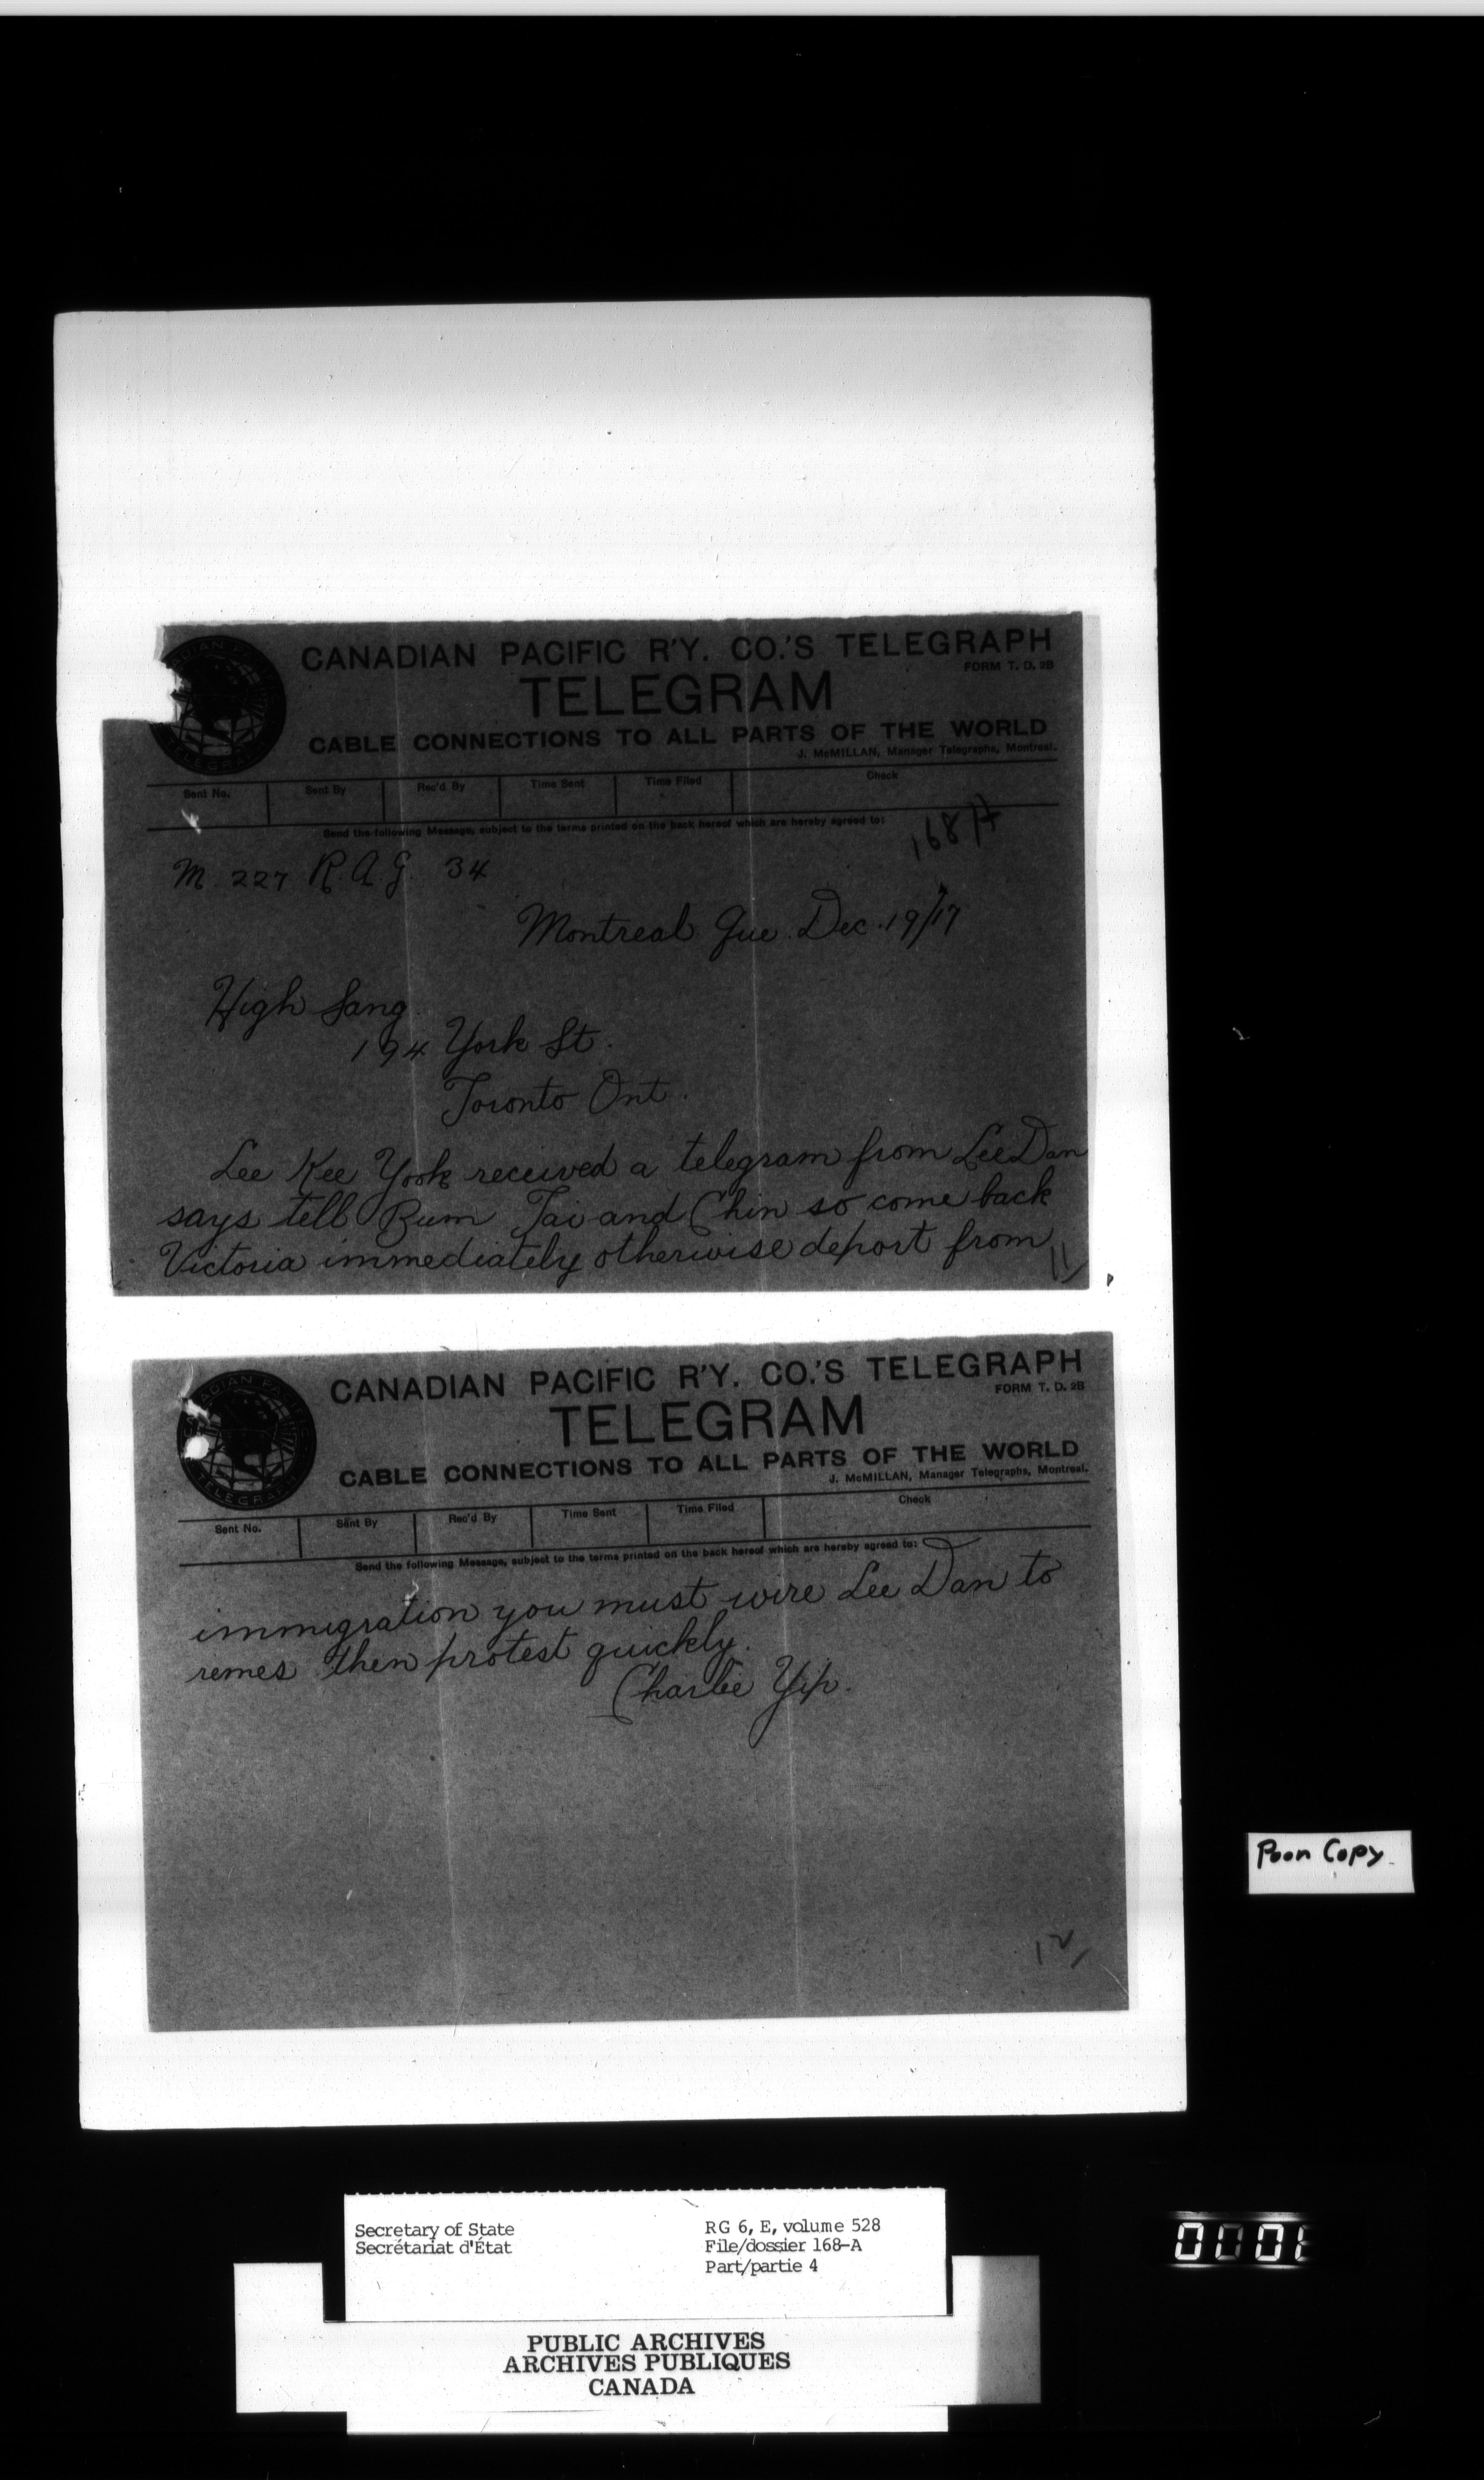 CANADIAN PACIFIC R'Y. CO.'S TELEGRAPH
FORM T. D. 2B
TELEGRAM
CABLE CONNECTIONS TO ALL PARTS OF THE WORLD
J. McMILLAN, Manager Telegraphs, Montreal.
Sent No. Sent By Rec'd By Time Sent Time Filed Check
Send the following Message, subject to the terms printed on the back hereof which are hereby agreed to:
168/A
M. 227 R.A.G. 34
Montreal Que. Dec. 19/17
High Sang
194 York St.
Toronto Ont.
Lee Kee York received a telegram from Lee Dan
says tell Bum Tai and Chin so come back
Victoria immediately otherwise deport from
11/
CANADIAN PACIFIC R'Y. CO.'S TELEGRAPH
FORM T. D. 2B
TELEGRAM
CABLE CONNECTIONS TO ALL PARTS OF THE WORLD
J. McMILLAN, Manager Telegraphs, Montreal.
Sent No. Sent By Rec'd By Time Sent Time Filed Check
Send the following Message, subject to the terms printed on the back hereof which are hereby agreed to:
immigration you must wire Lee Dan to
remes then protest quickly.
Charlie Yip.
12/
Poor Copy.
Secretary of State
Secrétariat d'État
RG 6, E, volume 528
File/dossier 168-A
Part/partie 4
PUBLIC ARCHIVES
ARCHIVES PUBLIQUES
CANADA